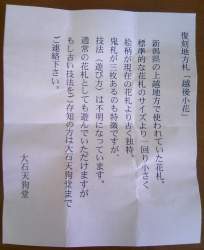 復刻地方札「越後小花」
新潟県の上越地方で使われていた花札。
標準的な花札のサイズより一回り小さく
絵柄が現在の花札より古く独特。
鬼札が三枚あるのも特徴ですが、
技法（遊び方）は不明になっています。
通常の花札としても遊んでいただけますが
もし古い技法をご存知の方は大石天狗堂まで
ご連絡下さい。
大石天狗堂